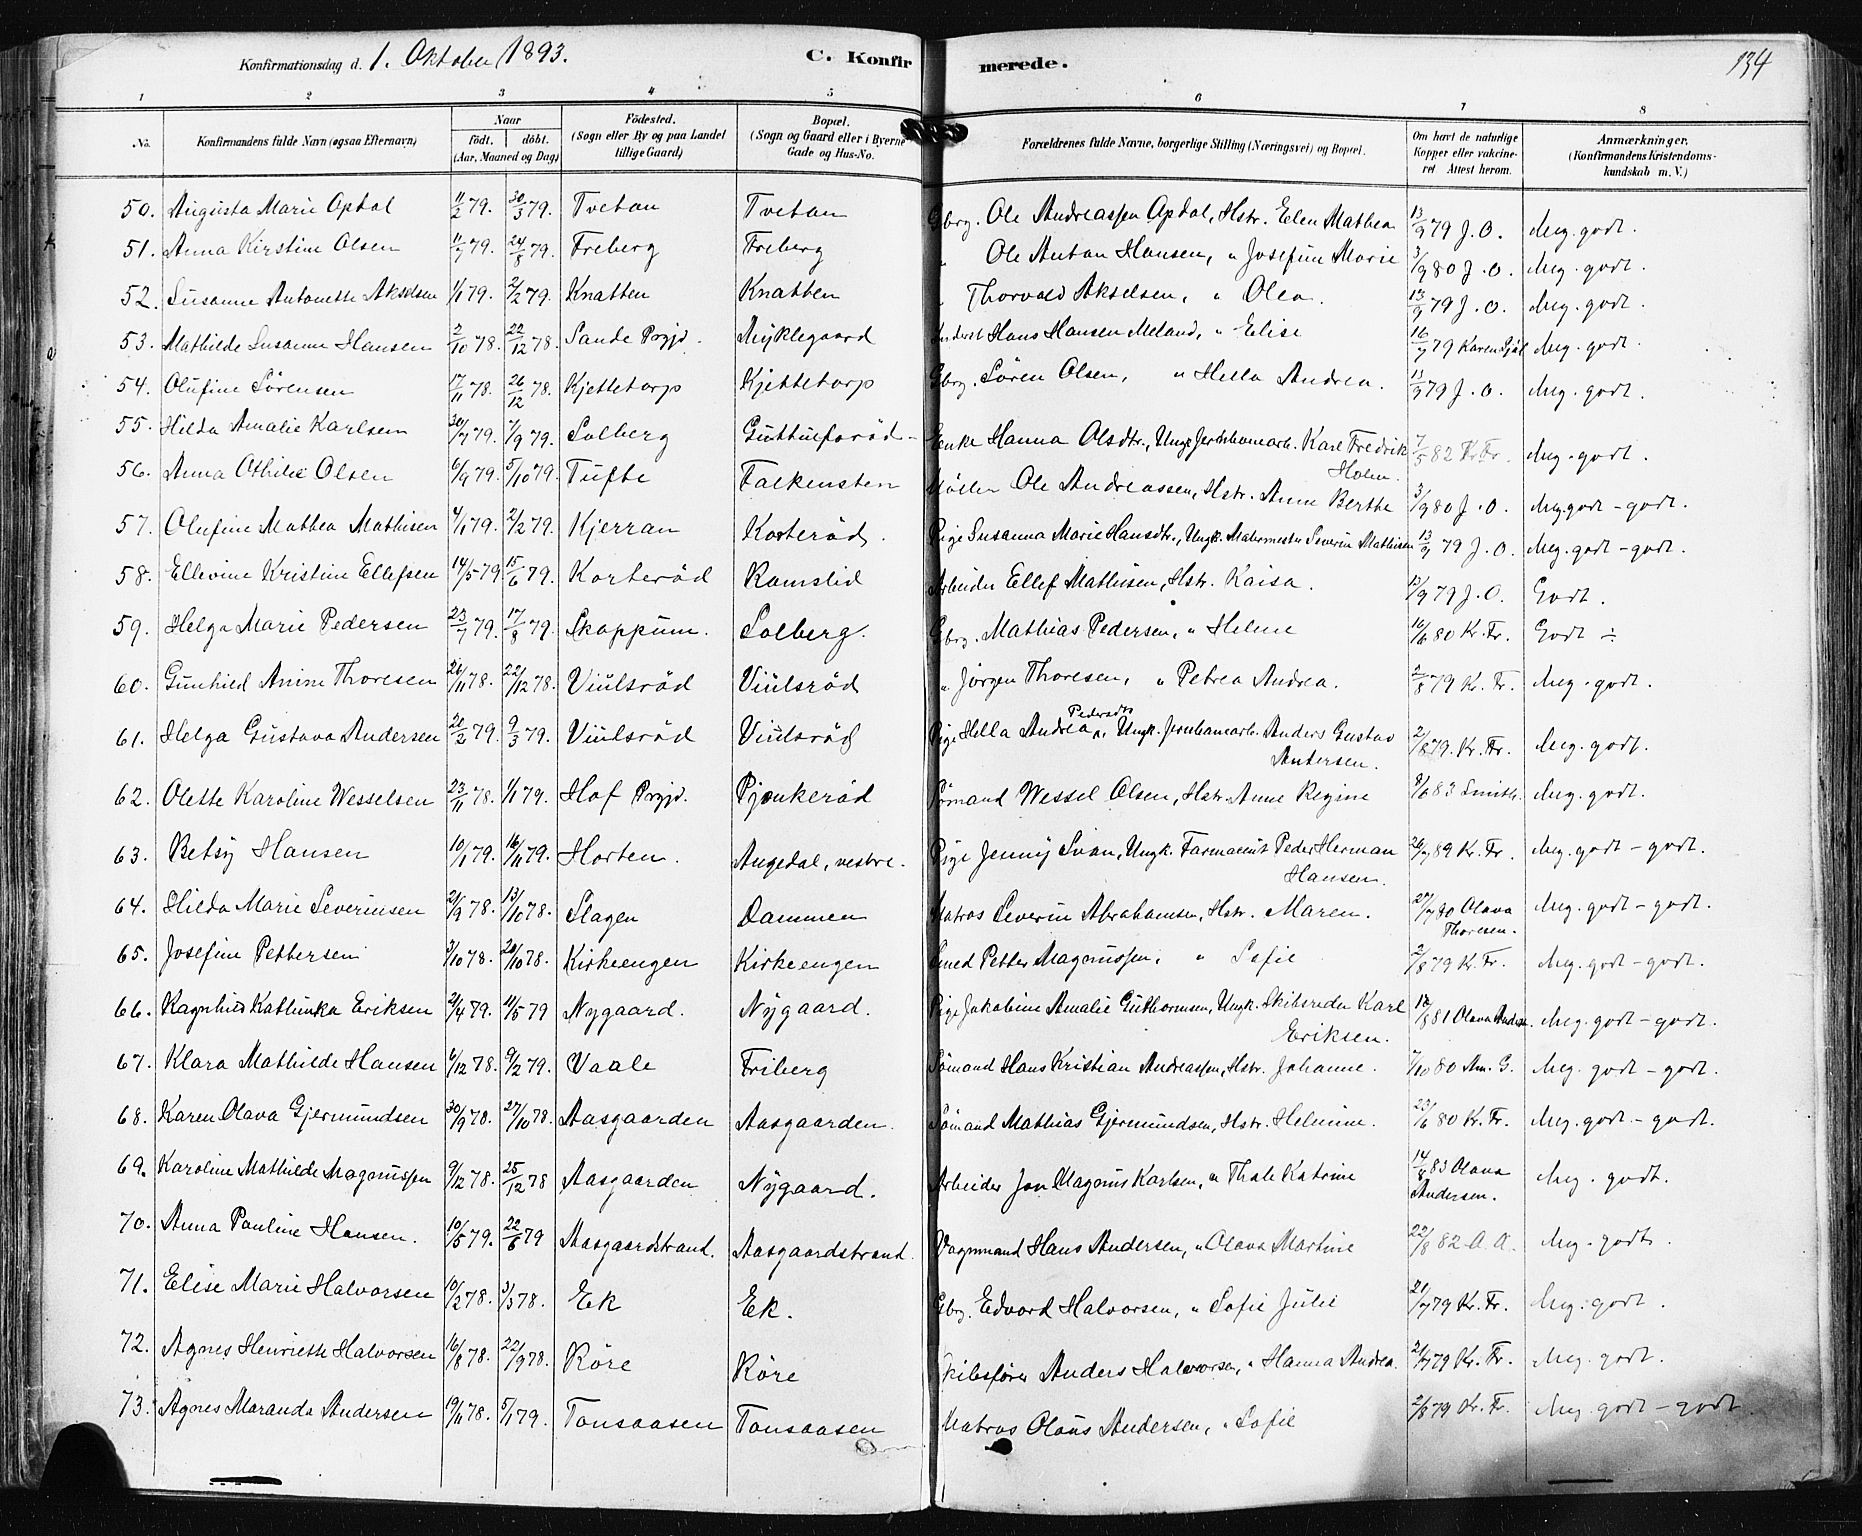 Konfirmationsdag d. 1. Oktober 1893. C. Konfirmerede. 134
1 2 3 4 5 6 7 8
No. Konfirmandens fulde Navn (ogsaa Efternavn) Naar født. døbt. (Aar, Maaned og Dag) Fødested. (Sogn eller By og paa Landet tillige Gaard) Bopæl. (Sogn og Gaard eller i Byerne Gade og Hus-No. Forældrenes fulde Navne, borgerlige Stilling (Næringsvei) og Bopæl. Om havt de naturlige Kopper eller vakcineret Attest herom. Anmærkninger. (Konfirmandens Kristendomskundskab m. V.)
50. Augusta Marie Opdal 11/2 79. 30/3 79. Tvetan Tvetan Gbrg. Ole Andreassen Opdal, Hstr. Elen Mathea 13/9 79 J. O. Meg. godt.
51. Anna Kirstine Olsen 11/7 79. 24/8 79. Freberg Freberg " Ole Anton Hansen, " Josefine Marie 3/9 80 J. O. Meg. godt.
52. Susanne Antonette Akselsen 1/1 79. 2/2 79. Knatten Knatten " Thorvald Akselsen, " Olea. 13/9 79 J. O. Meg. godt.
53. Mathilde Susanne Hansen 2/10 78. 22/12 78. Sande Prgjd. Myklegaard Inderst Hans Hansen Meland, " Elise 16/7 79 Karen Meg. godt.
54. Olufine Sørensen 17/11 78. 26/12 78. Kjettetorp Kjettetorp Gbrg. Søren Olsen, " Hella Andrea. 13/9 79 J. O. Meg. godt.
55. Hilda Amalie Karlsen 30/7 79. 7/9 79. Solberg Guttulfsrød Enke Hanna Olsdtr., Ungk. Jernbanearb. Karl Fredrik Holm. 7/5 82 Kr. Fr. Meg. godt.
56. Anna Othilie Olsen 6/9 79. 5/10 79. Tufte Falkensten Møller Ole Andreassen, Hstr. Anne Berthe 3/9 80 J. O. Meg. godt - godt.
57. Olufine Mathea Mathisen 4/1 79. 2/2 79. Kjerran Korterød. Pige Susanna Marie Hansdtr., Ungk. Malermester Severin Mathisen 13/9 79 J. O. Meg. godt - godt.
58. Ellevine Kristine Ellefsen 14/5 79 15/6 79. Korterød Ramslid Arbeider Ellef Mathisen, Hstr. Kaisa. 13/9 79 J. O. Godt.
59. Helga Marie Pedersen 23/7 79. 17/8 79. Skoppum. Solberg. Gbrg. Mathias Pedersen, " Helene 16/6 80 Kr. Fr. Godt ÷
60. Gunhild Anine Thoresen 26/11 78. 22/12 78. Viulsrød Viulsrød " Jørgen Thoresen, " Petrea Andrea. 2/8 79 Kr. Fr. Meg. godt.
61. Helga Gustava Andersen 20/2 79. 9/3 79. Viulsrød Viulsrød Pige Hella Andrea Pedersdtr, Ungk. Jernbanearb. Anders Gustav Andersen. 2/8 79. Kr. Fr. Meg. godt.
62. Olette Karoline Wesselsen 23/11 78. 1/1 79. Hof Prgjd. Pjonkerød Sømand Wessel Olsen, Hstr. Anne Regine 8/6 83 Smith. Meg. godt.
63. Betsy Hansen 10/1 79. 16/11 79. Horten. Augedal, vestre. Pige Jenny Svan, Ungk. Farmaceut Peder Herman Hansen. 26/7 89 Kr. Fr. Meg. godt - godt.
64. Hilda Marie Severinsen 21/9 78. 13/10 78. Slagen Dammen Matros Severin Abrahamsen, Hstr. Maren. 27/7 80 Olava Thoresen. Meg. godt - godt.
65. Josefine Pettersen 3/10 78. 20/10 78. Kirkeengen Kirkeengen Smed Petter Magnussen, " Sofie 2/8 79 Kr. Fr. Meg. godt - godt.
66. Ragnhild Kathinka Eriksen 2/4 79. 11/5 79 Nygaard. Nygaard. Pige Jakobine Amalie Guthormsen, Ungk. Skibsreder Karl Eriksen. 12/8 81 Olava Anders. Meg. godt - godt.
67. Klara Mathilde Hansen 6/12 78. 9/2 79. Vaale Friberg Sømand Hans Kristian Andreassen, Hstr. Johanne. 7/10 80 An. G. Meg. godt - godt.
68. Karen Olava Gjermundsen 30/9 78. 27/10 78. Aasgaarden Aasgaarden. Sømand Mathias Gjermundsen, Hstr. Helmine. 23/6 80 Kr. Fr. Meg. godt - godt.
69. Karoline Mathilde Magnussen 9/12 78. 25/12 78 Aasgaarden Nygaard. Arbeider Jon Magnus Karlsen, " Thale Katrine 14/8 83 Olava Andersen. Meg. godt.
70. Anna Pauline Hansen. 10/5 79. 22/6 79 Aasgaardstrand. Aasgaardstrand. Vognmand Hans Andersen, " Olava Martine 22/8 82 A. A. Meg. godt.
71. Elise Marie Halvorsen 10/2 78. 3/3 78. Ek Ek. Gbrg. Edvard Halvorsen, " Sofie Julie 21/7 79 Kr. Fr. Meg. godt.
72. Agnes Henriette Halvorsen 16/8 78. 22/9 78. Røre Røre Skibsfører Anders Halvorsen, " Hanna Andrea. 21/7 79 Kr. Fr. Meg. godt.
73. Agnes Maranda Andersen 19/11 78. 5/1 79. Tonsaasen Tonsaasen Matros Olaus Andersen, " Sofie 2/8 79 Kr. Fr. Meg. godt - godt.